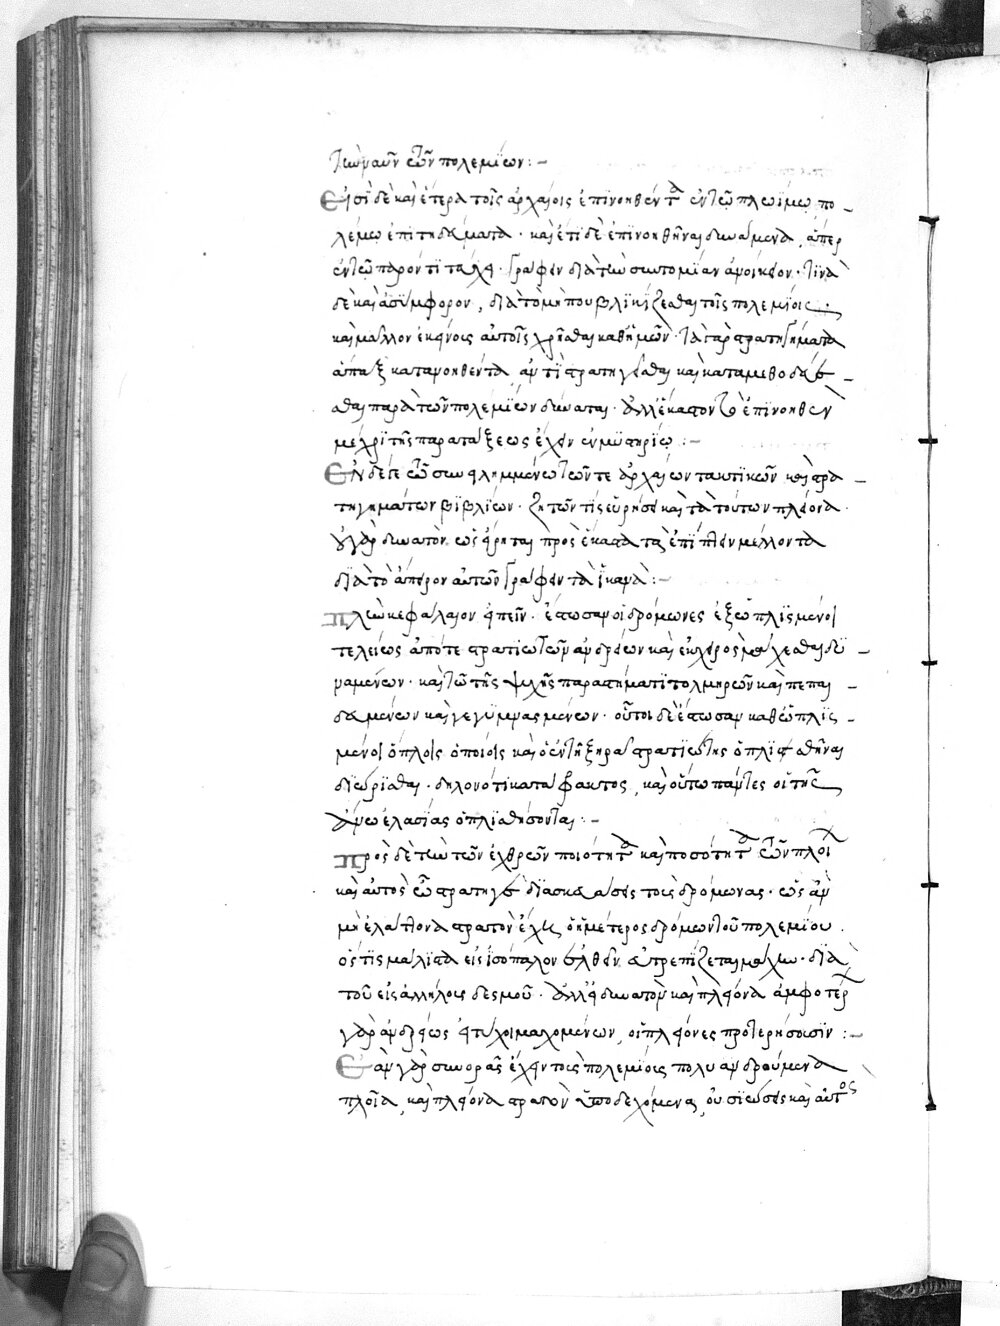 τὴν ναῦν τῶν πολεμίων :–
Εἰσὶ δὲ καὶ ἕτερα τοῖς ἀρχαίοις ἐπινοηθέντα ἐν τῶ πλωΐμω πο
λέμω ἐπιτηδεύματα · καὶ ἔτι δὲ ἐπινοηθῆναι δυνάμενα, ἅπερ
ἐν τῶ παρόντι γράφειν διὰ τὴν συντομίαν · τινὰ
δὲ καὶ ἀσύμφορον, διὰ τὸ μὴ πουβλικίζεσθαι τοῖς πολεμίοις
καὶ μᾶλλον ἐκείνοις αὐτοῖς χρῆσθαι καθ' ἡμῶν · τὰ γὰρ στρατηγήματα
ἅπαξ κατανοηθέντα ἀντιστρατηγεῖσθαι καὶ καταμεθοδεύε
σθαι παρὰ τῶν πολεμίων δύναται · ἀλλ' ἕκαστον τὸ ἐπινοηθὲν
μέχρι τῆς παρατάξεως ἔχειν ἐν μυστηρίω :–
Ἐν δέ γε τῶν τε ἀρχαίων τακτικῶν καὶ στρα
τηγημάτων βιβλίων · ζητῶν τίς εὑρήσει καὶ τὰ τούτων πλείονα ·
οὐ γὰρ δυνατὸν ὡς εἴρηται πρὸς ἕκαστα τὰ ἐπιπίπτειν μέλλοντα
διὰ τὸ ἄπειρον αὐτῶν γράφειν τὰ ἱκανά :–
Πλὴν κεφάλαιον εἰπεῖν · ἔστωσαν οἱ δρόμωνες ἐξωπλισμένοι
τελείως ἀπό τε στρατιωτῶν ἀνδρείων καὶ ἐκ χειρὸς μάχεσθαι δυ
ναμένων · καὶ τῶ τῆς ψυχῆς παραστήματι τολμηρῶν καὶ πεπαι
δευμένων καὶ γεγυμνασμένων · οὗτοι δὲ ἔστωσαν καθωπλισ
μένοι ὅπλοις ὁποίοις καὶ ὁ ἐν τῇ ξηρᾶ στρατιώτης ὁπλισθῆναι
διώρισθαι · δηλονότι κατάφρακτος, καὶ οὕτω πάντες οἱ τῆς
ἄνω ἐλασίας ὁπλισθήσονται :–
Πρὸς δὲ τὴν τῶν ἐχθρῶν ποιότητα καὶ ποσότητα τῶν πλοί
καὶ αὐτὸς ὦ στρατηγὲ διασκευάσεις τοὺς δρόμωνας · ὡς ἂν
μὴ ἐλάττονα στρατὸν ἔχει ὁ ἡμέτερος δρόμων τοῦ πολεμίου ·
ὅστις μάλιστα εἰς ἰσόπαλον ἐλθεῖν εὐτρεπίζεται μάχην · διὰ
τοῦ εἰς ἀλλήλους δεσμοῦ · ἀλλ' εἰ δυνατὸν καὶ πλείονα ἀμφοτέρ
γὰρ ἀνδρείως εἰ τύχοι μαχομένων, οἱ πλείονες προτερήσουσιν :–
Ἐὰν γὰρ συνορᾶς ἔχειν τοὺς πολεμίους πολυανδρούμενα
πλοῖα, καὶ πλείονα στρατὸν ὑποδεχόμενα, οὐσιώσεις καὶ αὐτὸς